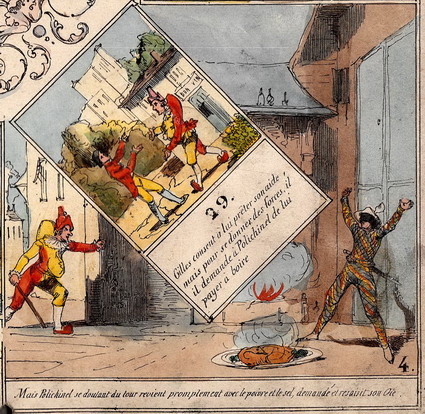 29.
Gilles consent à lui prêter son aide
mais pour se donner des forces, il
il demande à Polichinel de lui
payer à boire
4.
Mais Polichinel se doutant du tour revient promptement avec le poivre et le sel, demande et resaisit son Oie.